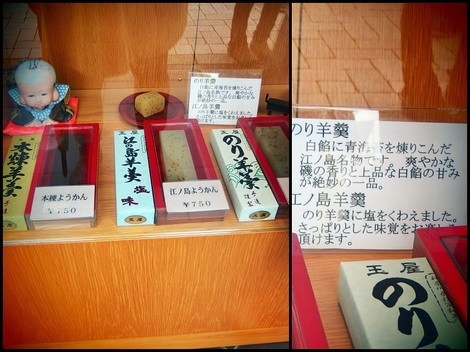 のり羊羹
白餡に青海苔を煉りこんだ
江ノ島名物です。爽やかな
磯の香りと上品な白餡の甘み
が絶妙の一品。
江ノ島羊羹
のり羊羹に塩をくわえました。
さっぱりとした味覚を
玉屋
本煉羊羹
本煉ようかん
¥750
玉屋
江ノ島羊羹
塩味
江ノ島ようかん
¥750
玉屋
のり羊羹
のり羊羹
白餡に青海苔を煉りこんだ
江ノ島名物です。爽やかな
磯の香りと上品な白餡の甘み
が絶妙の一品。
江ノ島羊羹
のり羊羹に塩をくわえました。
さっぱりとした味覚をお楽しみ
頂けます。
玉屋
のり